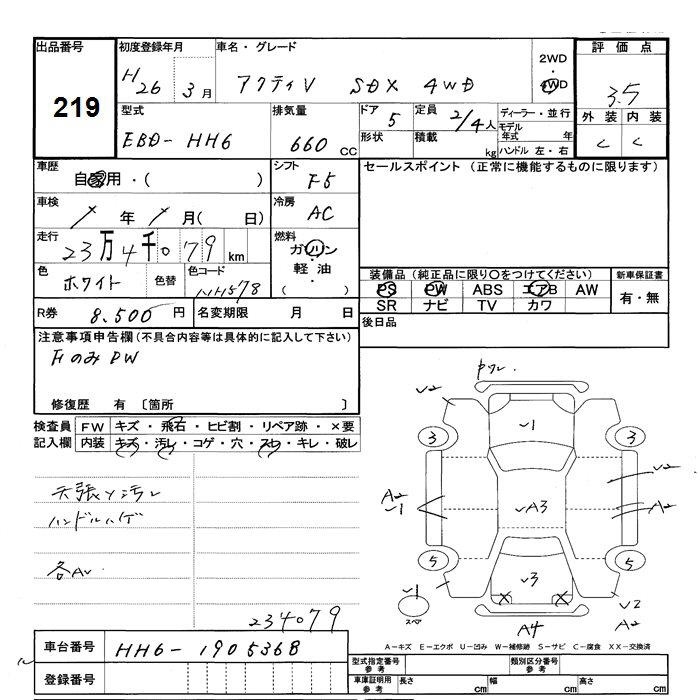 出品番号 初度登録年月 車名・グレード 評価点
219
H26 3月 アクティV SDX 4WD 2WD 4WD 3.5
型式 排気量 ドア 定員 ディーラー・並行 外装 内装
EBD-HH6 660cc 5 2/4人 モデル年式 年 C C
形状 積載 kg ハンドル 左・右
車歴 シフト セールスポイント (正常に機能するものに限ります)
自家用・( ) F5
車検 年 月( 日) 冷房 AC
走行 燃料
23万4千079km ガソリン・軽油 ( )
色 色替 色コード 装備品 (純正品に限り〇をつけてください) 新車保証書
ホワイト NH578 PS PW ABS エアB AW 有・無
SR ナビ TV カワ
R券 8,500円 名変期限 月 日 後日品
注意事項申告欄 (不具合内容等は具体的に記入して下さい)
Fのみ PW
修復歴 有 〔箇所 〕
検査員 FW キズ・飛石・ヒビ割・リペア跡・×要
記入欄 内装 キズ・汚レ・コゲ・穴・スレ・キレ・破レ
天張り汚レ
ハンドルハゲ
各AU
234079
ワレ
U2 U1
3 3
U2
A2 U1 UA3 A2
5 5
U3
U1 X X U2
スペア A4 A2
A-キズ E-エクボ U-凹み W-補修跡 S-サビ C-腐食 XX-交換済
車台番号 HH6-1905368
登録番号
型式指定番号 参考 類別区分番号 参考
車庫証明用 参考 長さ cm 幅 cm 高さ cm